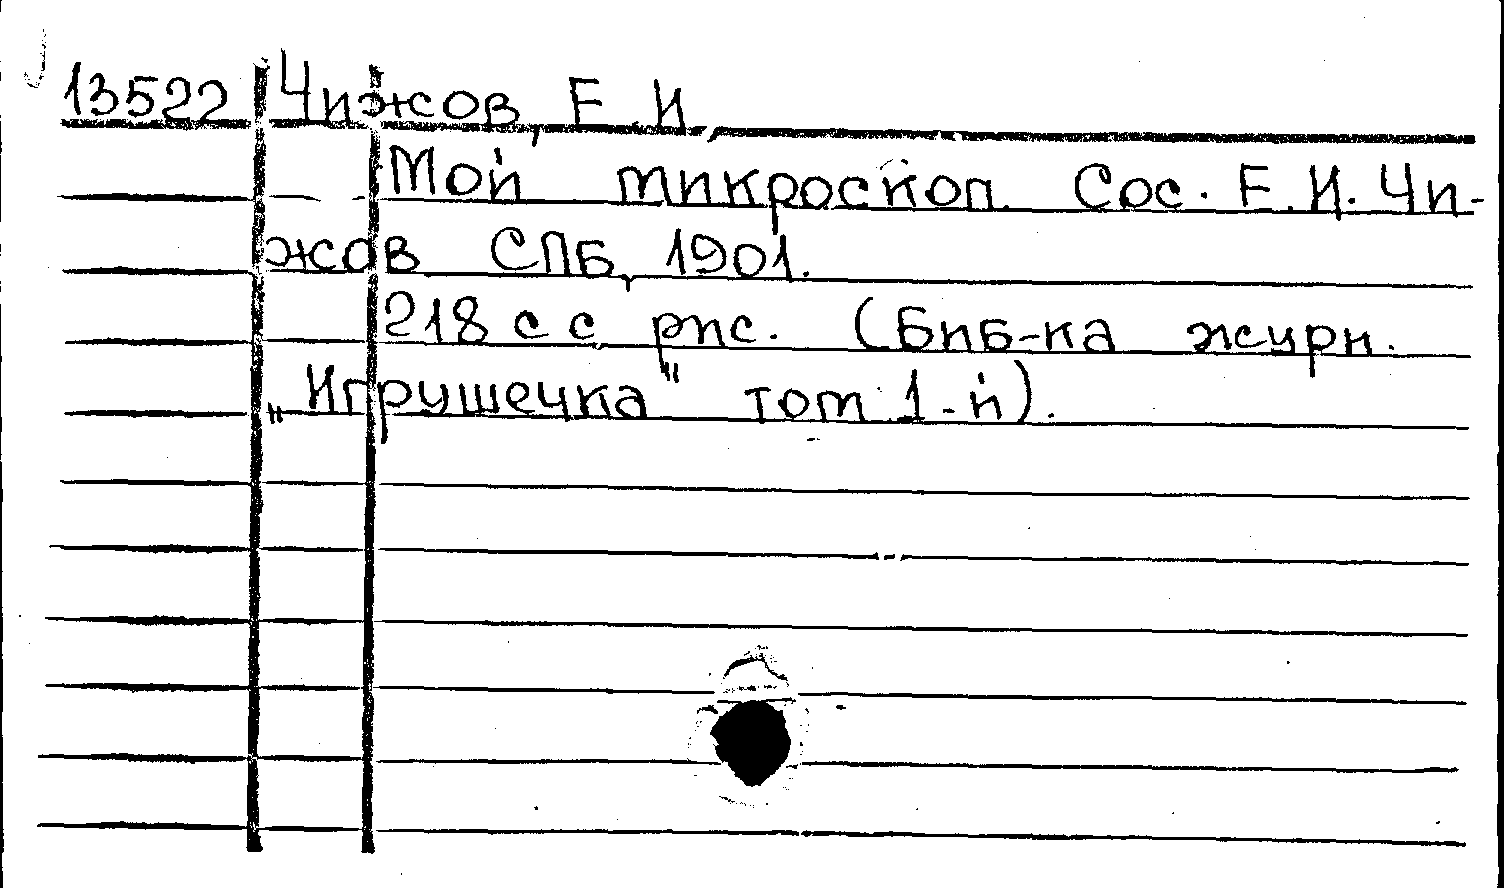 13522 Чижов, Е. И.
Мой микроскоп. Сос. Е. И. Чи-
жов СПБ, 1901.
218 с с рис. (Биб-ка журн.
„Игрушечка" том 1-й).